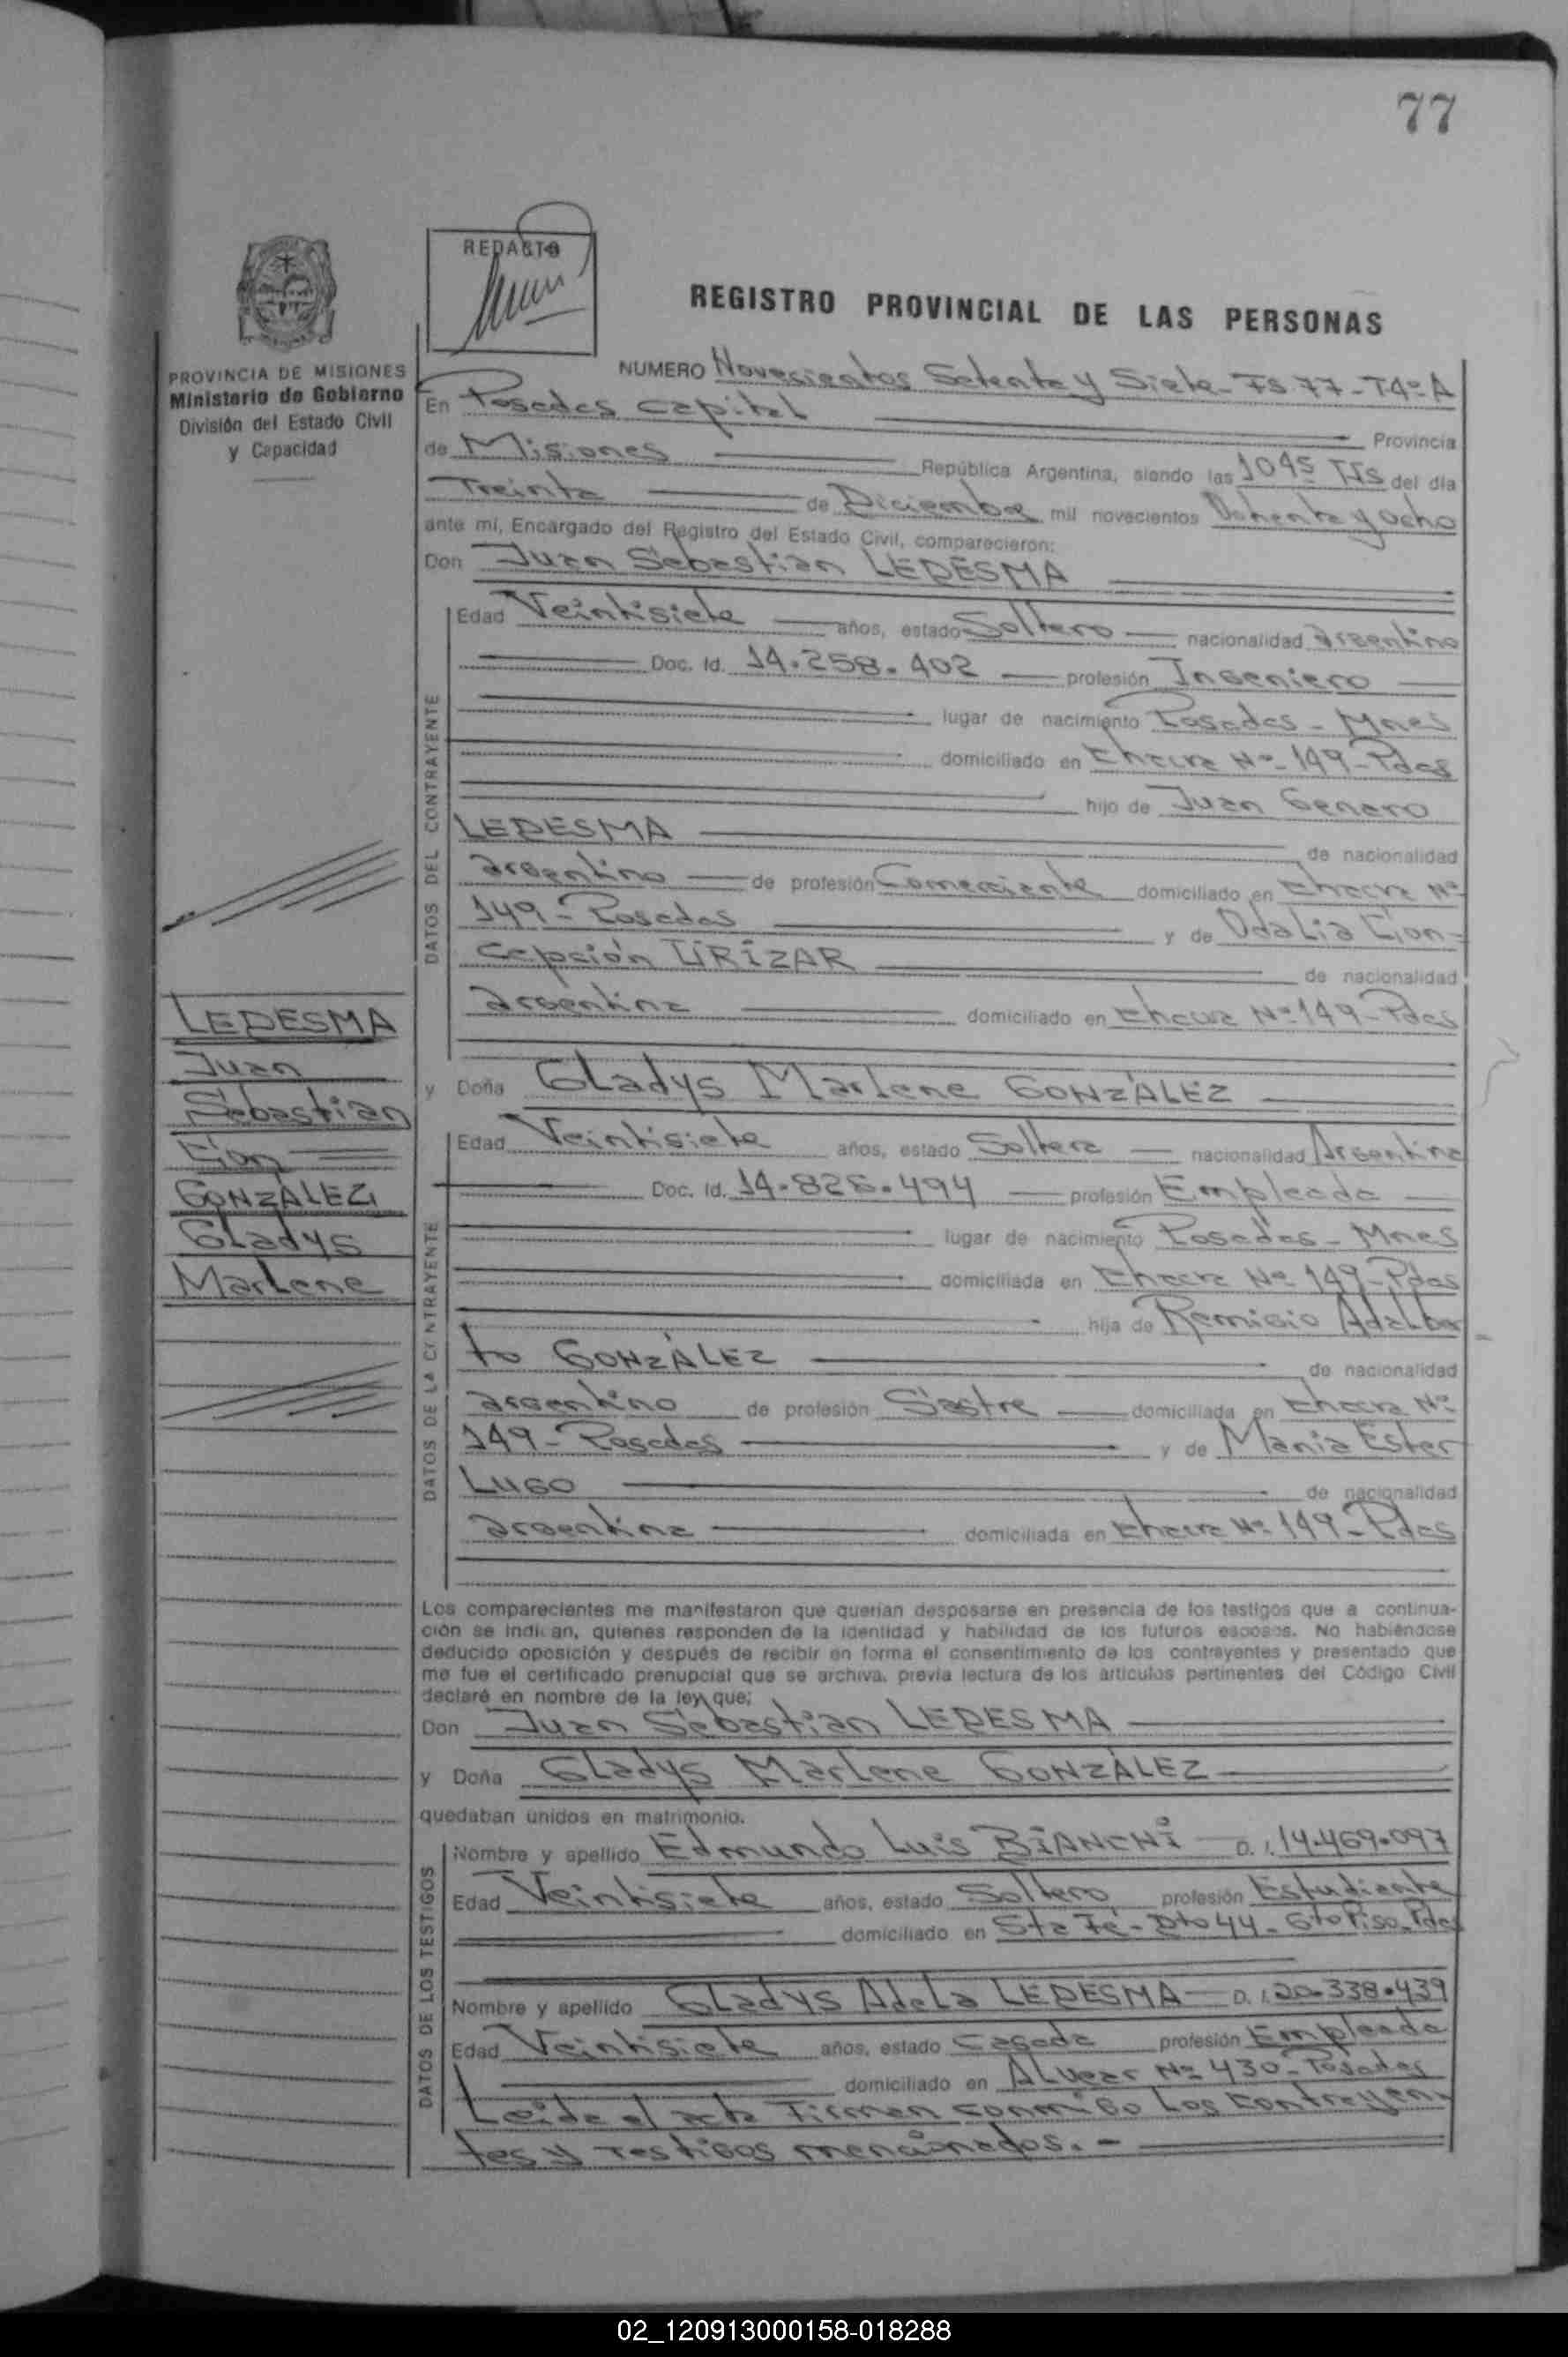 77
REDACTO
REGISTRO PROVINCIAL DE LAS PERSONAS
PROVINCIA DE MISIONES
Ministerio de Gobierno
División del Estado Civil
y Capacidad
NUMERO Novecientos Setenta y Siete - Fs 77 - T4º-A
En Posadas Capital Provincia
de Misiones República Argentina, siendo las 1045 Hs del día
Treinta de Diciembre mil novecientos Ochenta y ocho
ante mí, Encargado del Registro del Estado Civil, comparecieron:
Don Juan Sebastian LEDESMA
DATOS DEL CONTRAYENTE
Edad Veintisiete años, estado Soltero nacionalidad argentino
Doc. Id. 14.258.402 profesión Ingeniero
lugar de nacimiento Posadas - Mnes
domiciliado en Chacra Nº 149 - Pdas
hijo de Juan Genaro
LEDESMA de nacionalidad
argentino de profesión Comerciante domiciliado en Chacra Nº
149 - Posadas y de Odalia Con-
cepción URÍZAR de nacionalidad
argentina domiciliado en Chacra Nº 149 - Pdas
LEDESMA
Juan
Sebastian
Con
GONZÁLEZ
Gladys
Marlene
y Doña Gladys Marlene GONZÁLEZ
DATOS DE LA CONTRAYENTE
Edad Veintisiete años, estado Soltera nacionalidad Argentina
Doc. Id. 14.826.494 profesión Empleada
lugar de nacimiento Posadas - Mnes
domiciliada en Chacra Nº 149 - Pdas
hija de Remigio Adalber-
to GONZÁLEZ de nacionalidad
argentino de profesión Sastre domiciliada en Chacra Nº
149 - Posadas y de María Ester
LUGO de nacionalidad
argentina domiciliada en Chacra Nº 149 - Pdas
Los comparecientes me manifestaron que querían desposarse en presencia de los testigos que a continua-
ción se indican, quienes responden de la identidad y habilidad de los futuros esposos. No habiéndose
deducido oposición y después de recibir en forma el consentimiento de los contrayentes y presentado que
me fue el certificado prenupcial que se archiva, previa lectura de los artículos pertinentes del Código Civil
declaré en nombre de la ley que;
Don Juan Sebastian LEDESMA
y Doña Gladys Marlene GONZÁLEZ
quedaban unidos en matrimonio.
DATOS DE LOS TESTIGOS
Nombre y apellido Edmundo Luis BIANCHI D.I. 14.469.097
Edad Veintisiete años, estado Soltero profesión Estudiante
domiciliado en Sta Fé - Dto 44 - 6to Piso - Pdas
Nombre y apellido Gladys Adela LEDESMA D.I. 20.338.439
Edad Veintisiete años, estado Casada profesión Empleada
domiciliado en Alvear Nº 430 - Posadas
Leída el acta Firman conmigo los contrayen-
tes y Testigos mencionados. -
02_120913000158-018288